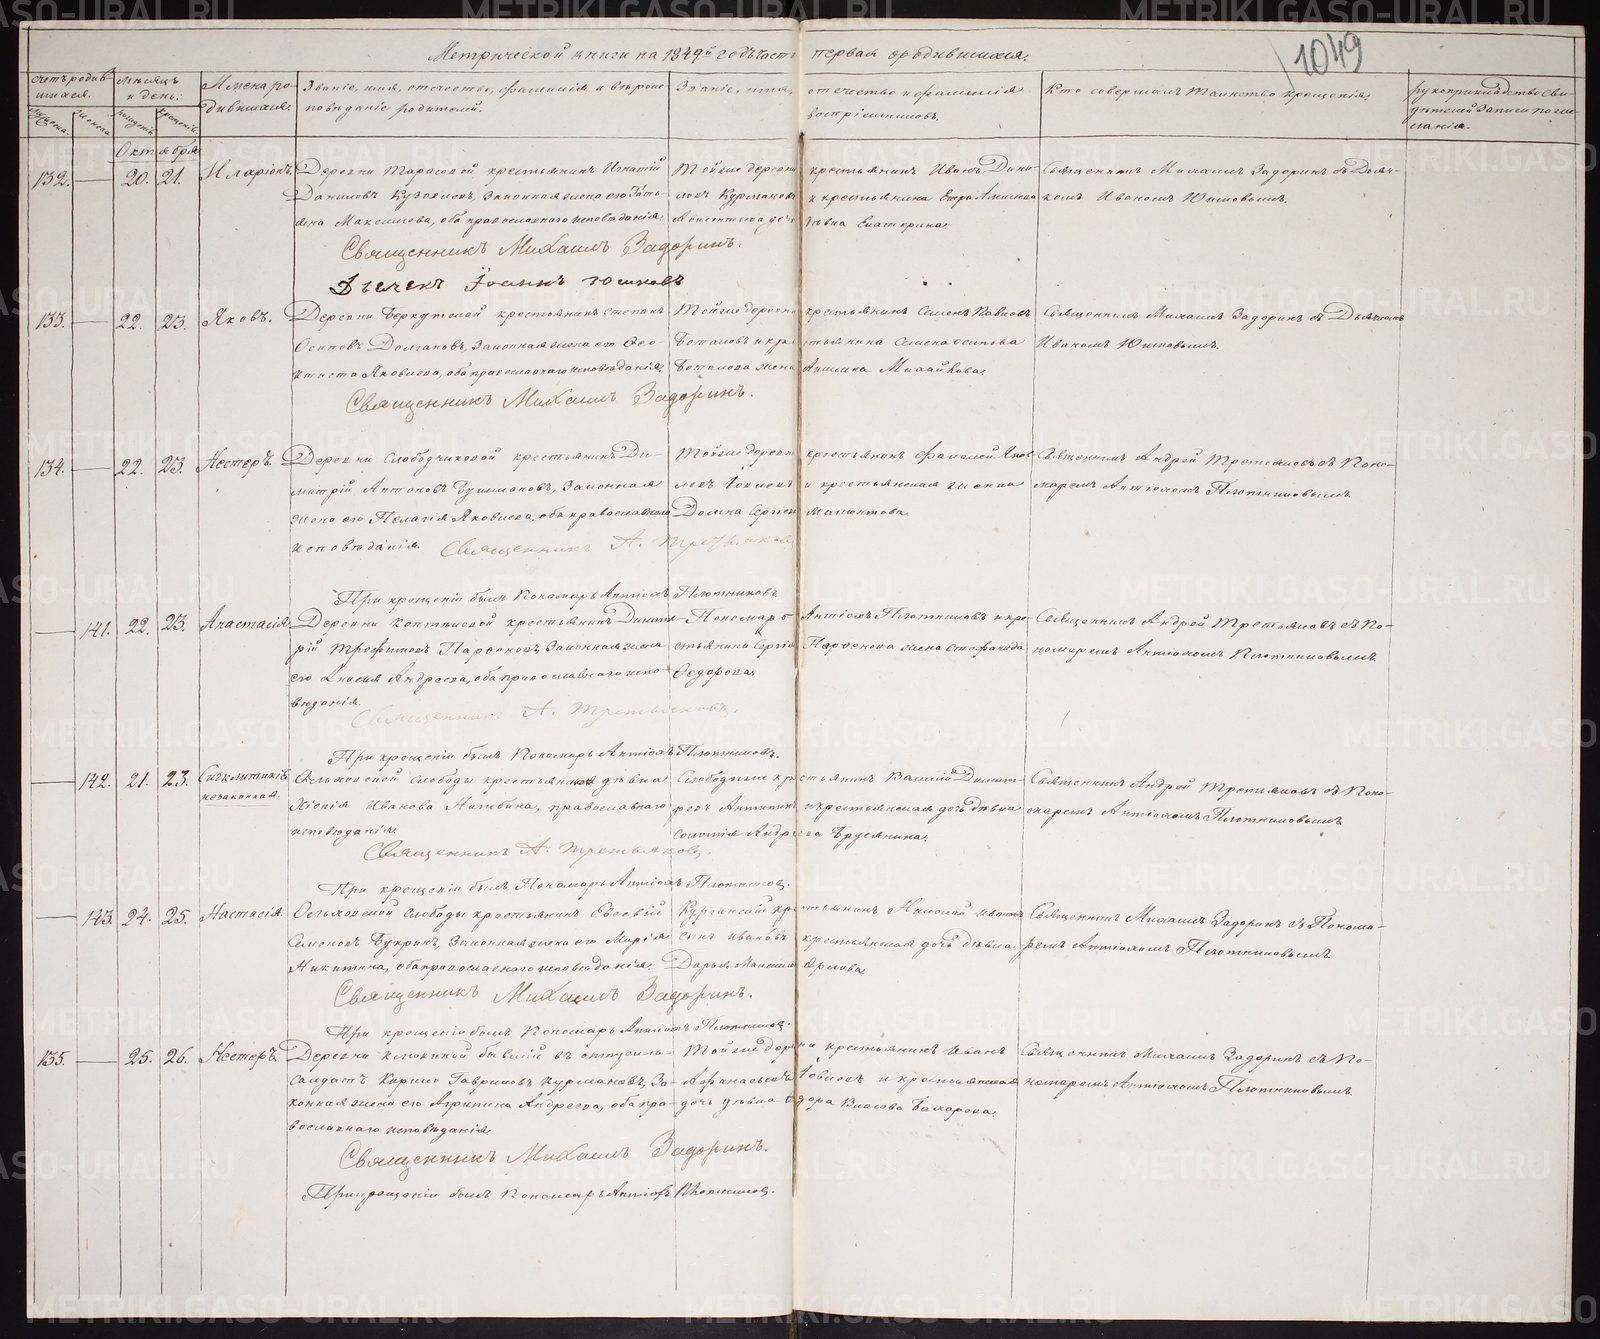 Метрической книги на 1849й годъ часть первая о родившихся.
1049
Счетъ родившихся.
Мѣсяцъ и день.
Имена родившихся.
Званіе, имя, отчество, фамилія и вѣроисповѣданіе родителей.
Званіе, имя, отчество и фамилія воспріемниковъ.
Кто совершалъ таинство крещенія.
рукоприкладство свидѣтелей записи по желанію.
Мужеска. Женска. рожденія крещенія
Октября
132. 20. 21. Иларіонъ.
Деревни Тарасовой крестьянинъ Игнатій
Даниловъ законная жена его Тать-
яна Максимова, оба православнаго исповѣданія.
Тойже деревни крестьянинъ Иванъ
и крестьянина
дѣвка Екатерина.
Священникъ Михаилъ Задоринъ съ Дьяч-
комъ Иваномъ Юшковымъ.
Священникъ Михаилъ Задоринъ.
Дьячекъ Іоаннъ Юшковъ
133. 22. 23. Яковъ.
Деревни Беркутской крестьянинъ Степанъ
Осиповъ Долгановъ, законная жена его Ѳео-
ктиста Яковлева, оба православнаго исповѣданія.
Тойже деревни крестьянинъ Семенъ Павловъ
Боталовъ и крестьянина Семена Осипова
Боталова жена Акилина Михайлова.
Священникъ Михаилъ Задоринъ съ Дьячкомъ
Иваномъ Юшковымъ.
Священникъ Михаилъ Задоринъ.
134. 22. 23. Несторъ.
Деревни Слободчиковой крестьянинъ Ди-
митрій Антоновъ законная
жена его Пелагія Яковлева, оба православнаго
исповѣданія. Священникъ А. Третьяковъ
Тойже деревни крестьянинъ
и крестьянская женка
Домна Сергѣева
Священникъ Андрей Третьяковъ съ Поно-
маремъ Антіохомъ Плотниковымъ
При крещеніи былъ Пономарь Антіохъ Плотниковъ
141. 22. 23. Анастасія
Деревни крестьянинъ Димит-
рій Трофимовъ законная жена
его Андреева, оба православнаго испо-
вѣданія.
Пономарь Антіохъ Плотниковъ и кре-
стьянина Сергія Парѳенова жена Стефанида
Ѳедорова.
Священникъ Андрей Третьяковъ съ По-
номаремъ Антіохомъ Плотниковымъ
Священникъ А. Третьяковъ.
При крещеніи былъ Пономарь Антіохъ Плотниковъ.
142. 21. 23. Сигклитикія
незаконная.
Слободы крестьянская дѣвка
Ксенія Иванова православнаго
исповѣданія.
Слободы крестьянинъ Василій Димит-
ріевъ и крестьянская дочь дѣвка
Соломія Андреева Бруснина.
Священникъ Андрей Третьяковъ съ Поно-
маремъ Антіохомъ Плотниковымъ
Священникъ А. Третьяковъ.
При крещеніи былъ Пономарь Антіохъ Плотниковъ.
143. 24. 25. Настасія
Слободы крестьянинъ Евсевій
Семеновъ Букринъ, законная жена его Марія
Никитина, оба православнаго исповѣданія.
Курганскій крестьянинъ Николай
сынъ Ивановъ крестьянская дочь дѣвка
Дарья Максимова Орлова.
Священникъ Михаилъ Задоринъ съ Понома-
ремъ Антіохомъ Плотниковымъ
Священникъ Михаилъ Задоринъ.
При крещеніи былъ Пономарь Антіохъ Плотниковъ.
135. 25. 26. Несторъ.
Деревни Клюкиной бывшій въ отпуску
солдатъ Кирило Гавриловъ Курмановъ, за-
конная жена его Агрипина Андреева, оба пра-
вославнаго исповѣданія.
Тойже деревни крестьянинъ Иванъ
Афанасьевъ и крестьянская
дочь дѣвка Ѳедора Власова Бахарева.
Священникъ Михаилъ Задоринъ съ По-
номаремъ Антіохомъ Плотниковымъ.
Священникъ Михаилъ Задоринъ.
При крещеніи былъ Пономарь Антіохъ Плотниковъ.
METRIKI.GASO-URAL.RU